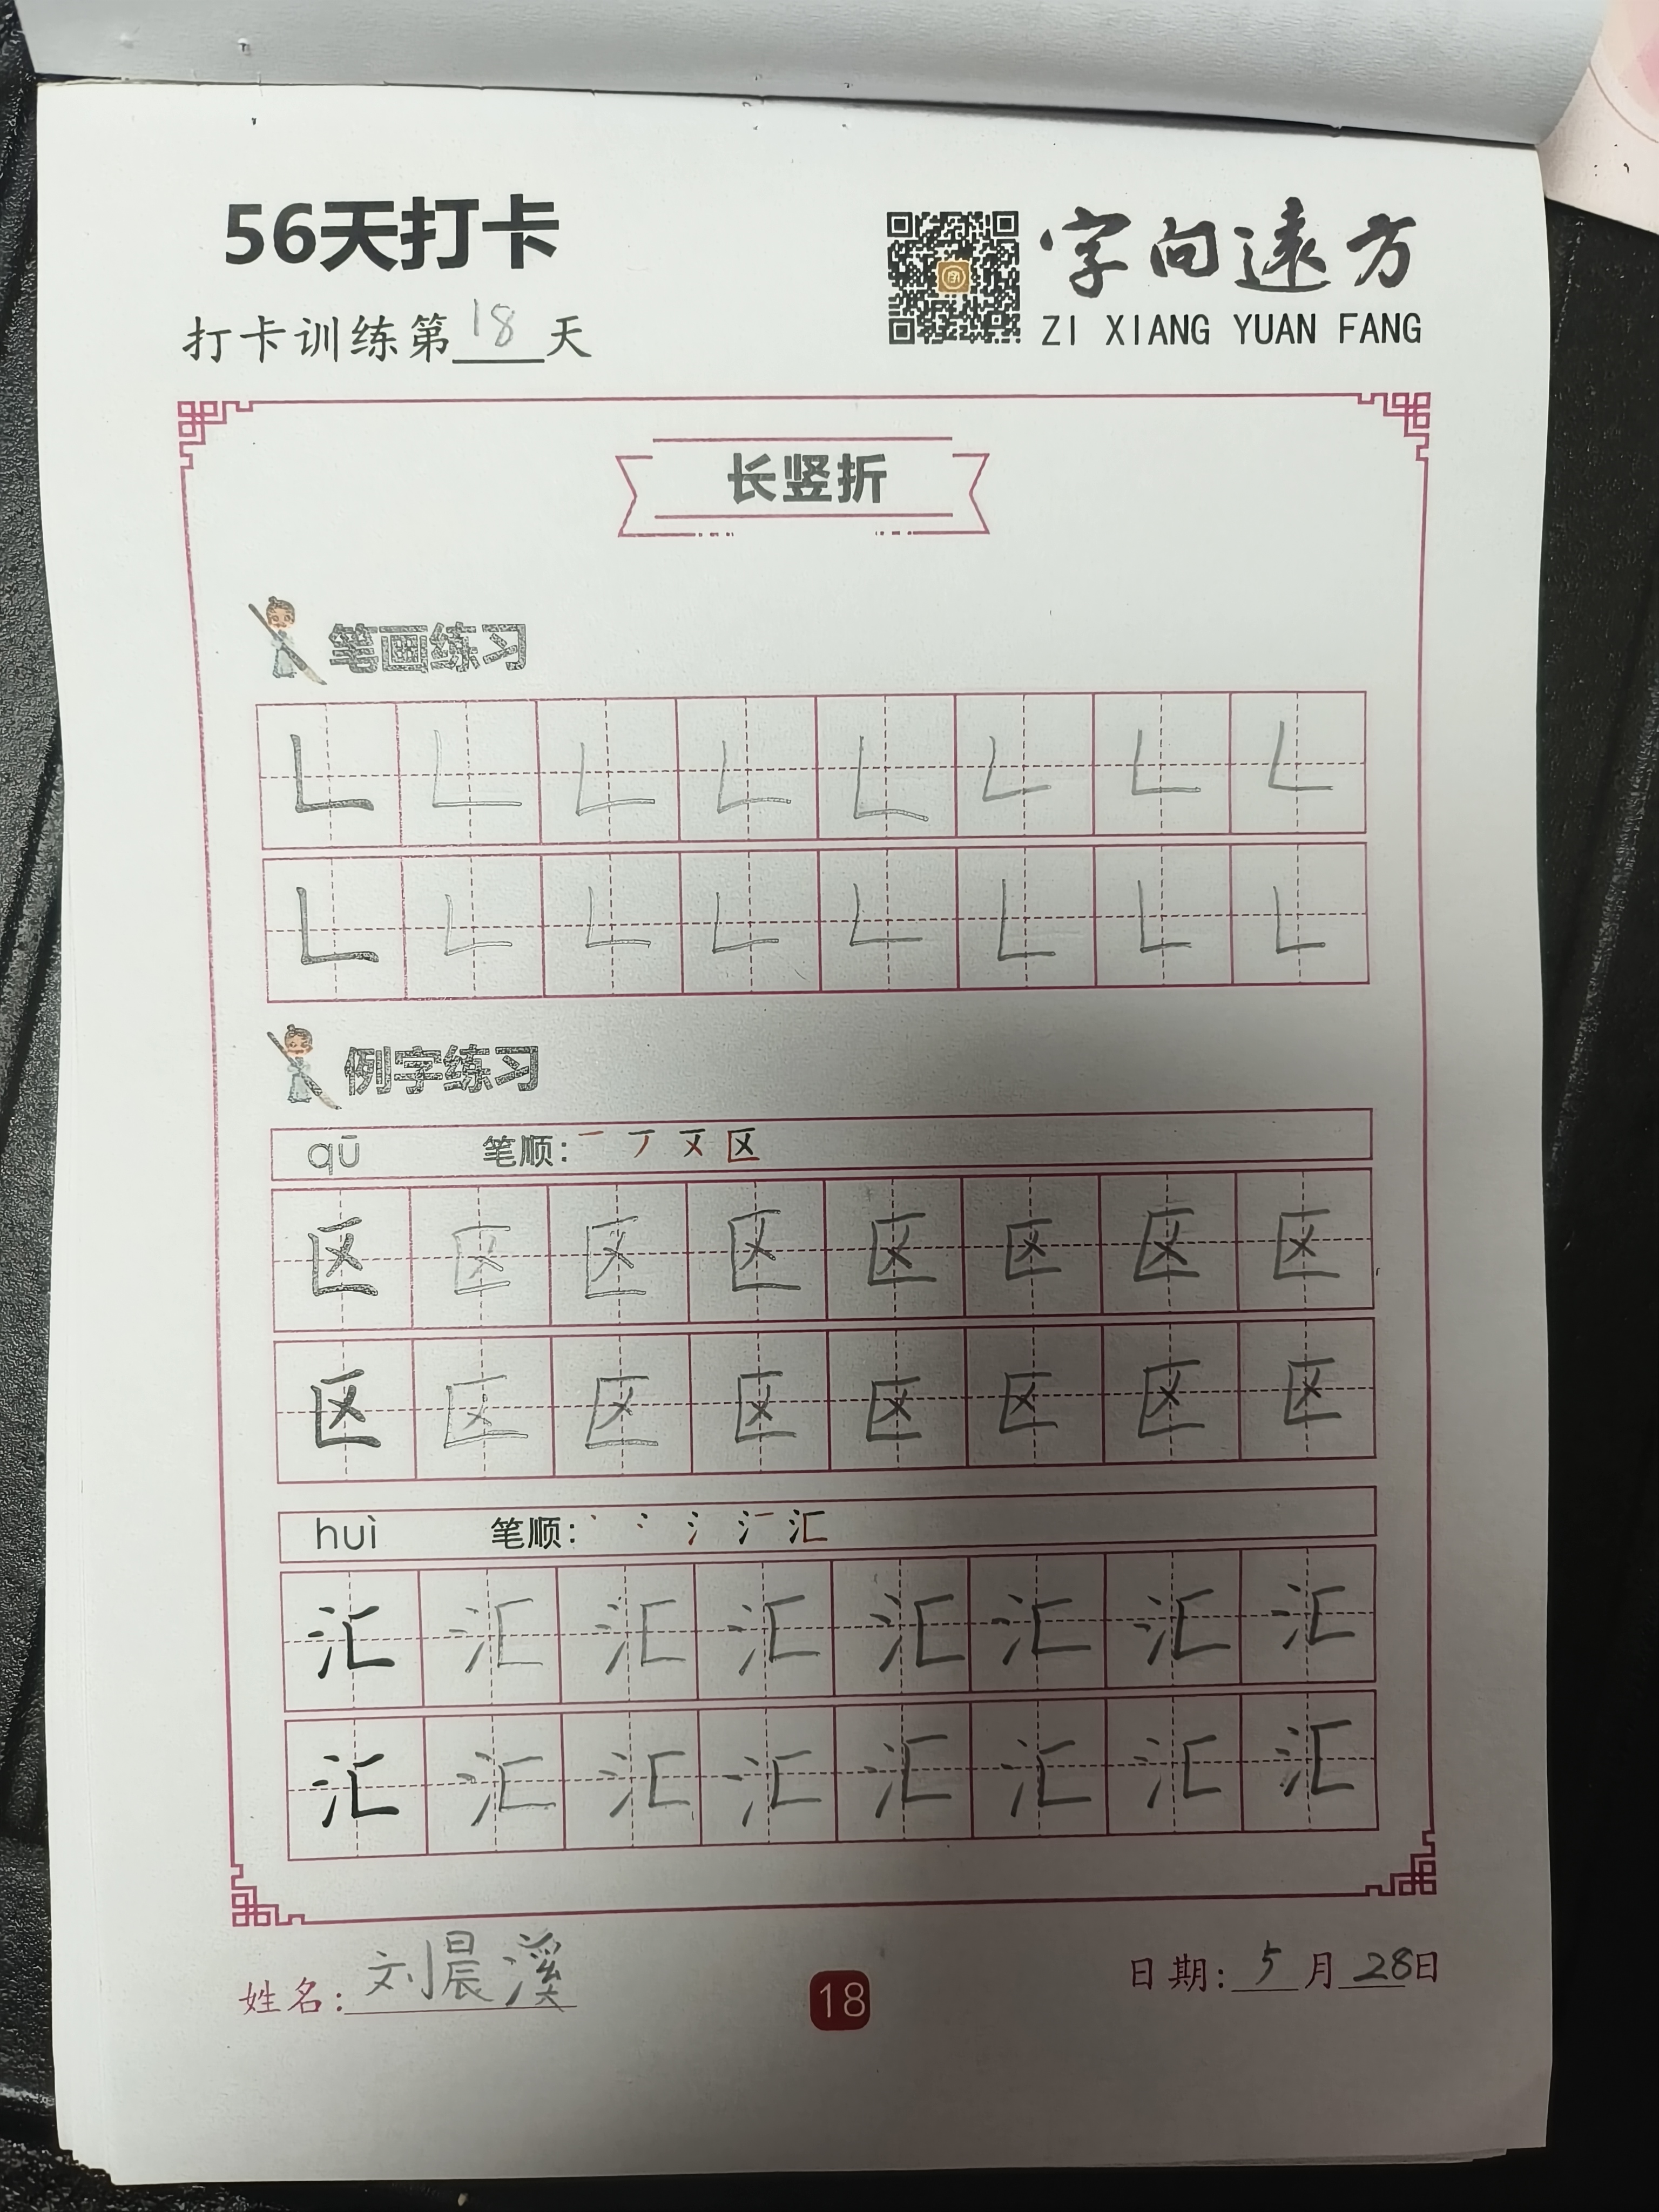 56天打卡
字向遠方
ZI XIANG YUAN FANG
打卡训练第18天
长竖折
笔画练习
例字练习
qū 笔顺: 一 丆 区
区 区 区 区 区 区 区 区
区 区 区 区 区 区 区 区
huì 笔顺: 丶 冫 氵 汇
汇 汇 汇 汇 汇 汇 汇 汇
汇 汇 汇 汇 汇 汇 汇 汇
姓名: 刘晨溪
18
日期: 5月28日